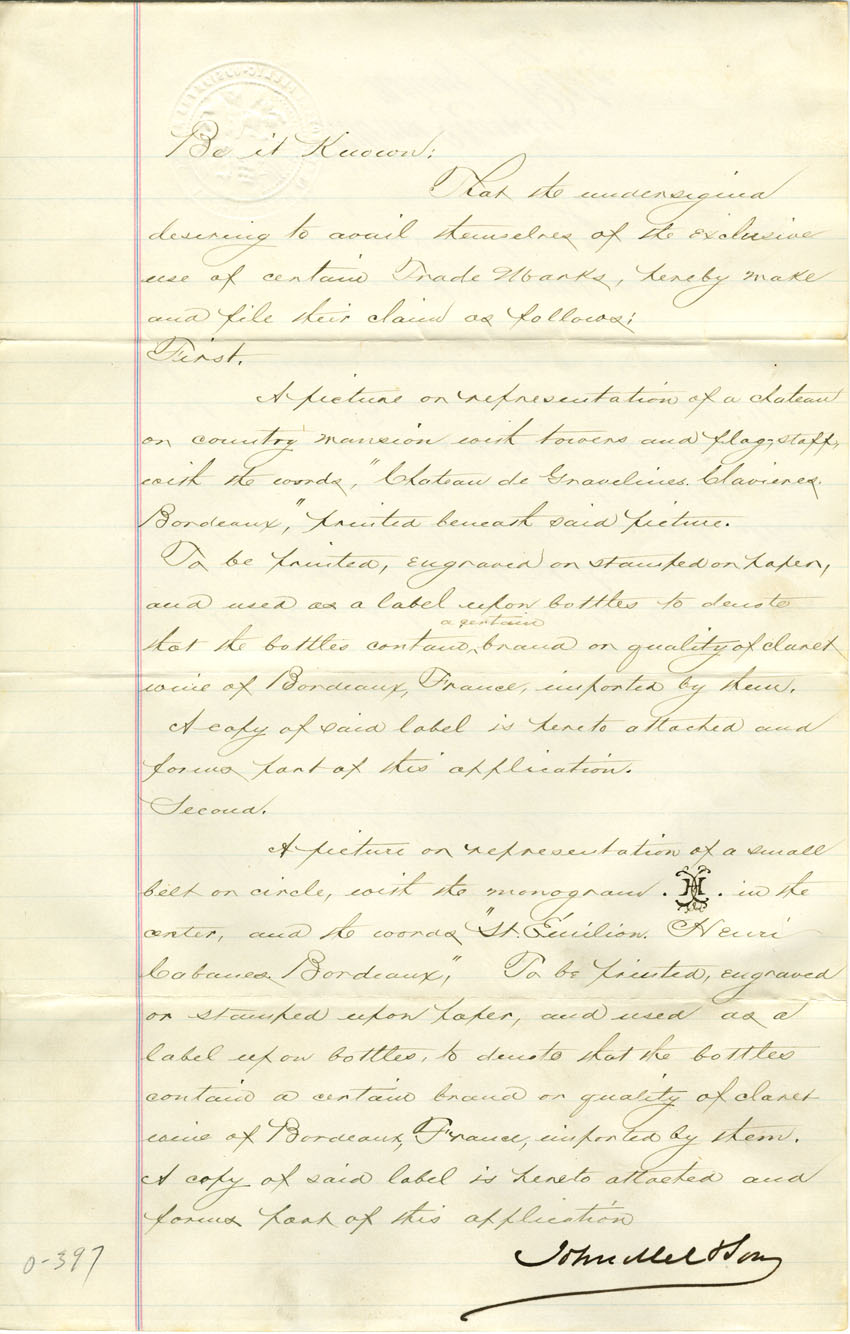 Be it Known:
That the undersigned
desiring to avail themselves of the exclusive
use of certain Trade Marks, hereby make
and file their claim as follows:
First.
A picture or representation of a chateau
or country mansion with towers and flag-staff,
with the words, "Chateau de Gravelines. Clavieres.
Bordeaux," printed beneath said picture.
To be printed, engraved or stamped on paper,
and used as a label upon bottles to denote
a certain
that the bottles contain brand or quality of claret
wine of Bordeaux, France, imported by them.
A copy of said label is hereto attached and
forms part of this application.
Second.
A picture or representation of a small
belt or circle, with the monogram . . in the
center, and the words "St. Émilion. Henri
Cabanes. Bordeaux," To be printed, engraved
or stamped upon paper, and used as a
label upon bottles, to denote that the bottles
contain a certain brand or quality of claret
wine of Bordeaux, France, imported by them.
A copy of said label is hereto attached and
forms part of this application
John Mel & Son
0-397